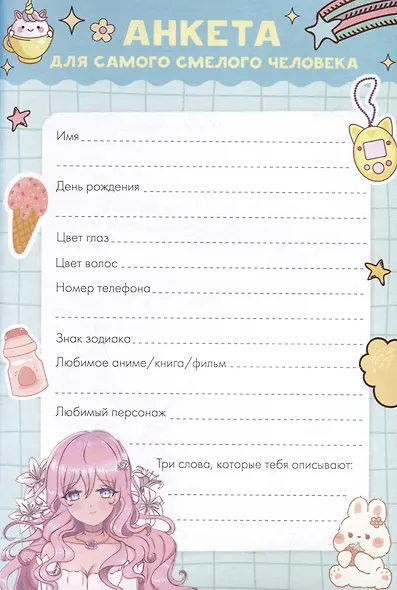 АНКЕТА
ДЛЯ САМОГО СМЕЛОГО ЧЕЛОВЕКА
Имя
День рождения
Цвет глаз
Цвет волос
Номер телефона
Знак зодиака
Любимое аниме/книга/фильм
Любимый персонаж
Три слова, которые тебя описывают: